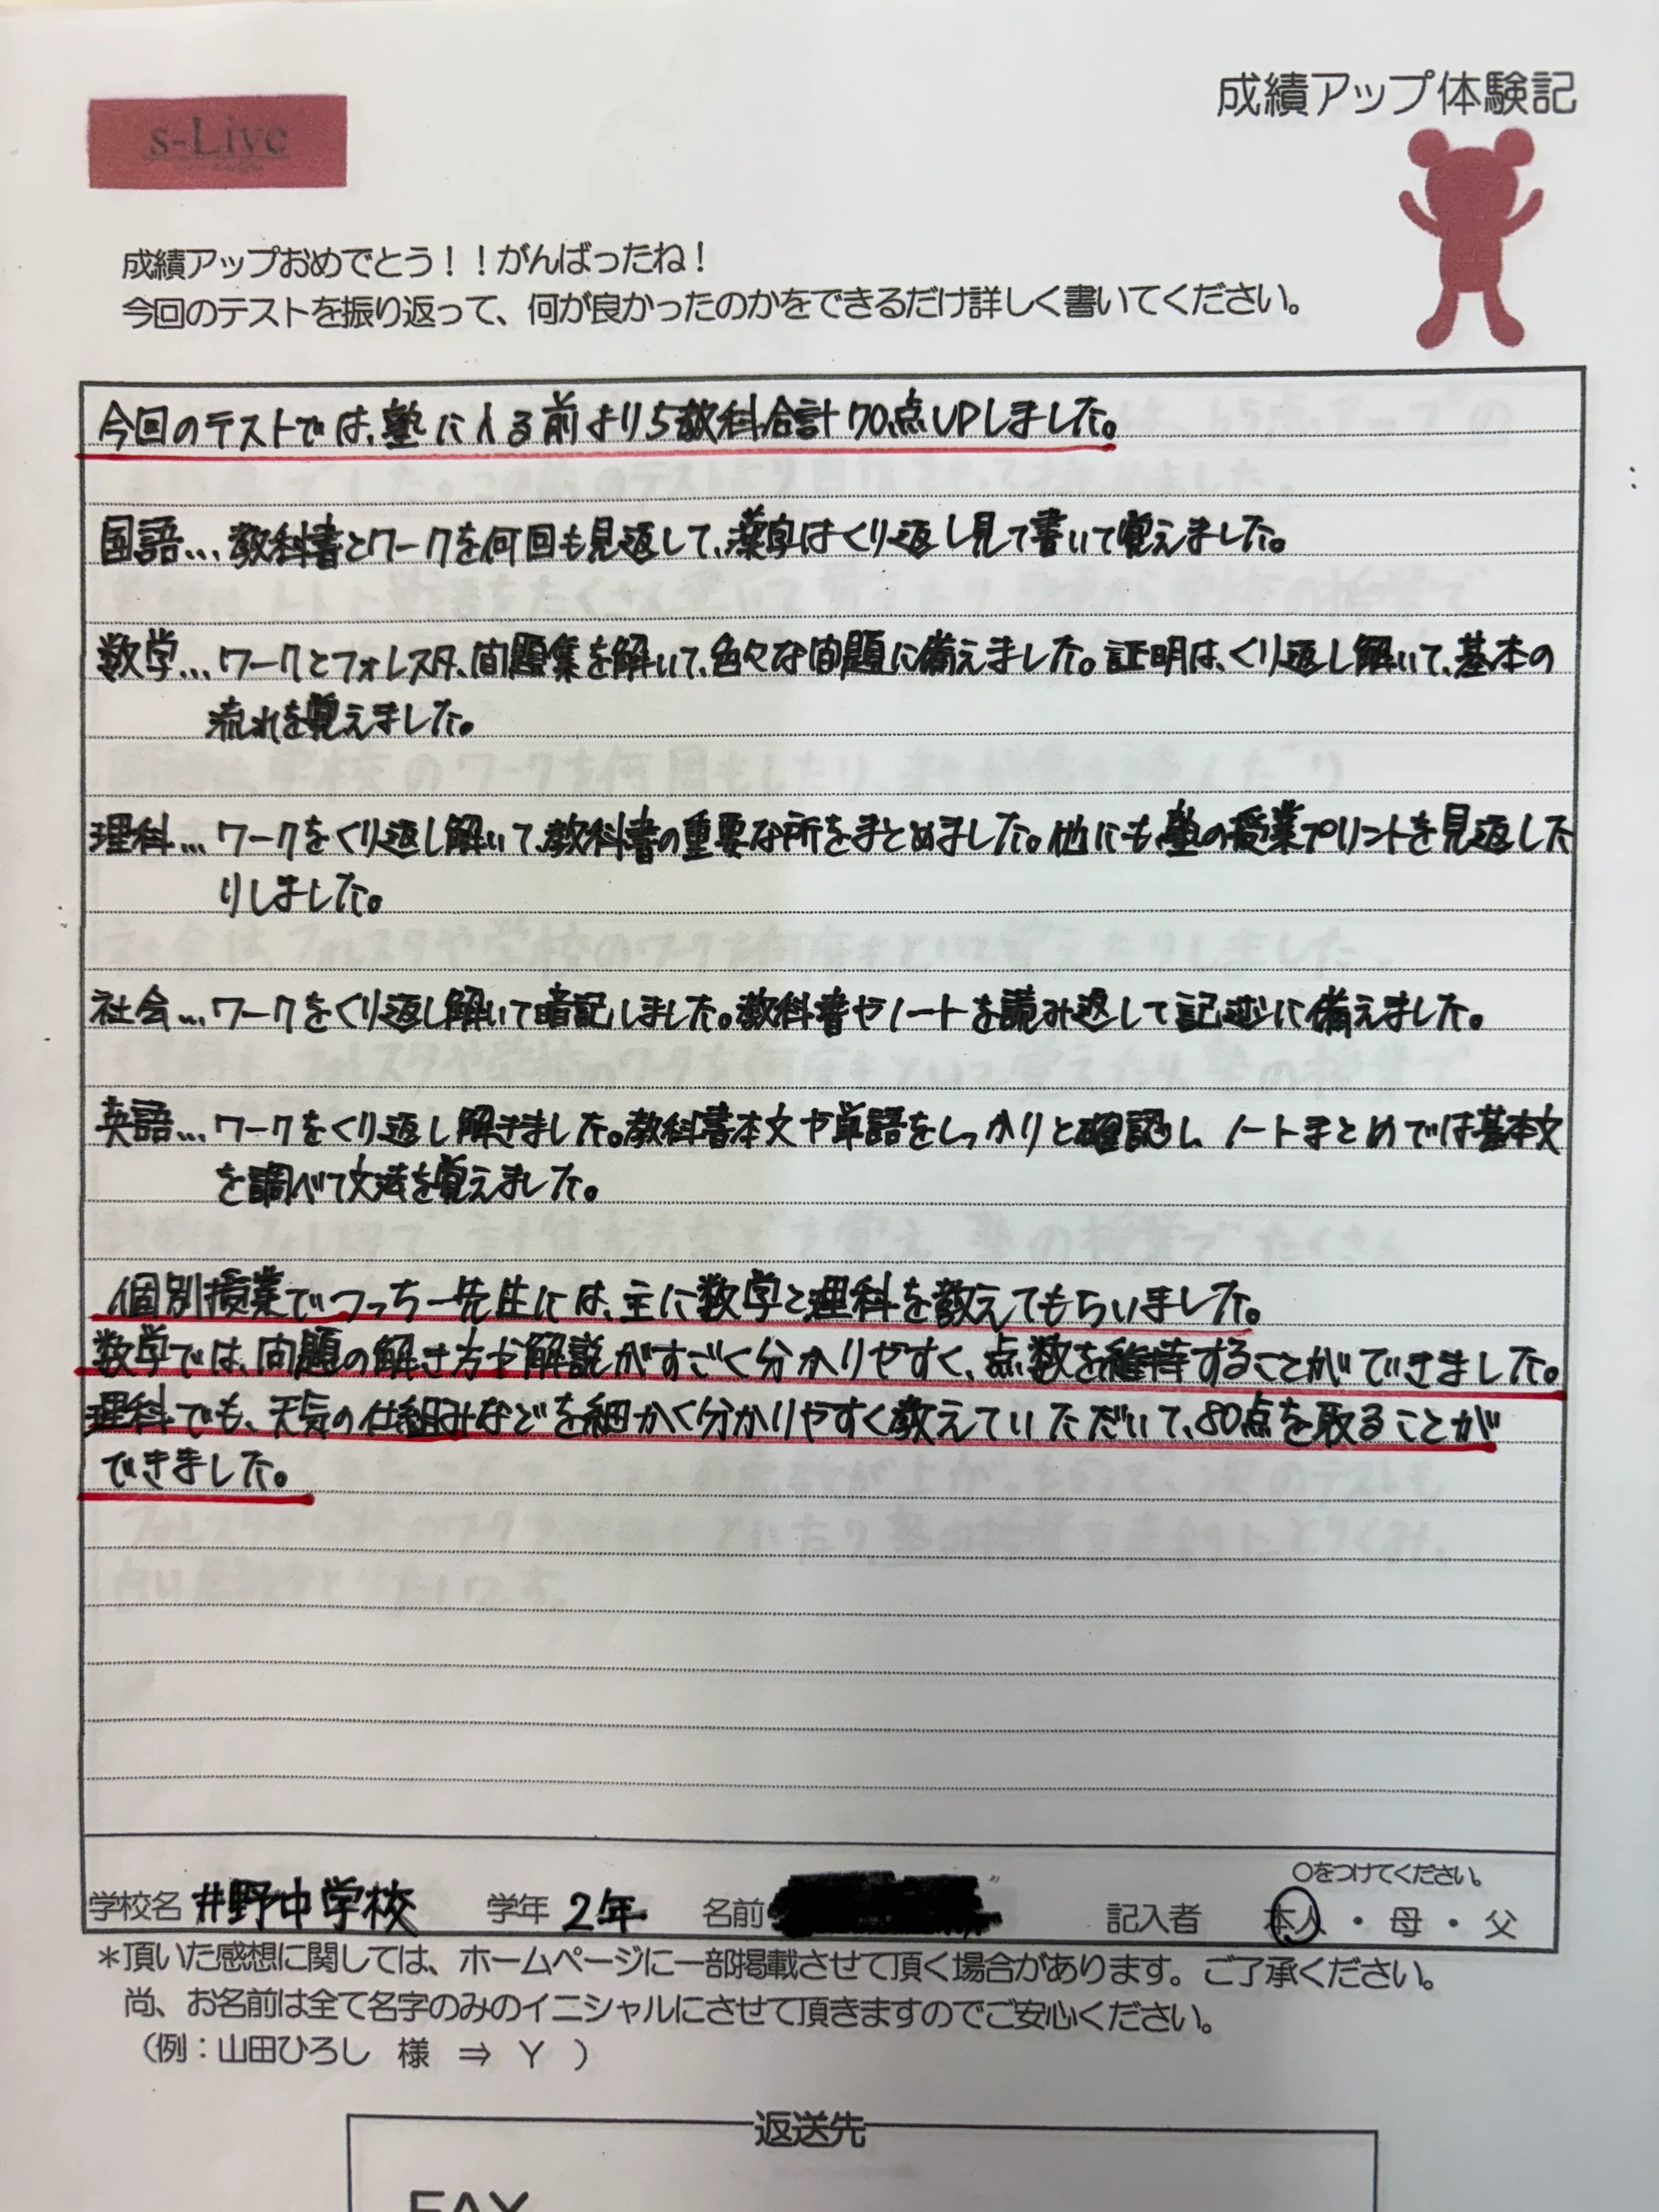 成績アップ体験記
s-Live
成績アップおめでとう！！がんばったね！
今回のテストを振り返って、何が良かったのかをできるだけ詳しく書いてください。
今回のテストでは、塾に入る前より5教科合計70点UPしました。
国語…教科書とワークを何回も見返して、漢字はくり返し見て書いて覚えました。
数学…ワークとフォレスタ、問題集を解いて、色々な問題に備えました。証明は、くり返し解いて、基本の
流れを覚えました。
理科…ワークをくり返し解いて、教科書の重要な所をまとめました。他にも、塾の授業プリントを見返した
りしました。
社会…ワークをくり返し解いて暗記しました。教科書やノートを読み返して記述に備えました。
英語…ワークをくり返し解きました。教科書本文や単語をしっかりと確認し、ノートまとめでは基本文
を調べて文法を覚えました。
個別授業でつっちー先生には、主に数学と理科を教えてもらいました。
数学では、問題の解き方や解説がすごく分かりやすく、点数を維持することができました。
理科でも、天気の仕組みなどを細かく分かりやすく教えていただいて、80点を取ることが
できました。
○をつけてください。
学校名 井野中学校 学年 2年 名前 記入者 本人・母・父
＊頂いた感想に関しては、ホームページに一部掲載させて頂く場合があります。ご了承ください。
尚、お名前は全て名字のみのイニシャルにさせて頂きますのでご安心ください。
（例：山田ひろし 様 ⇒ Y ）
返送先
FAX